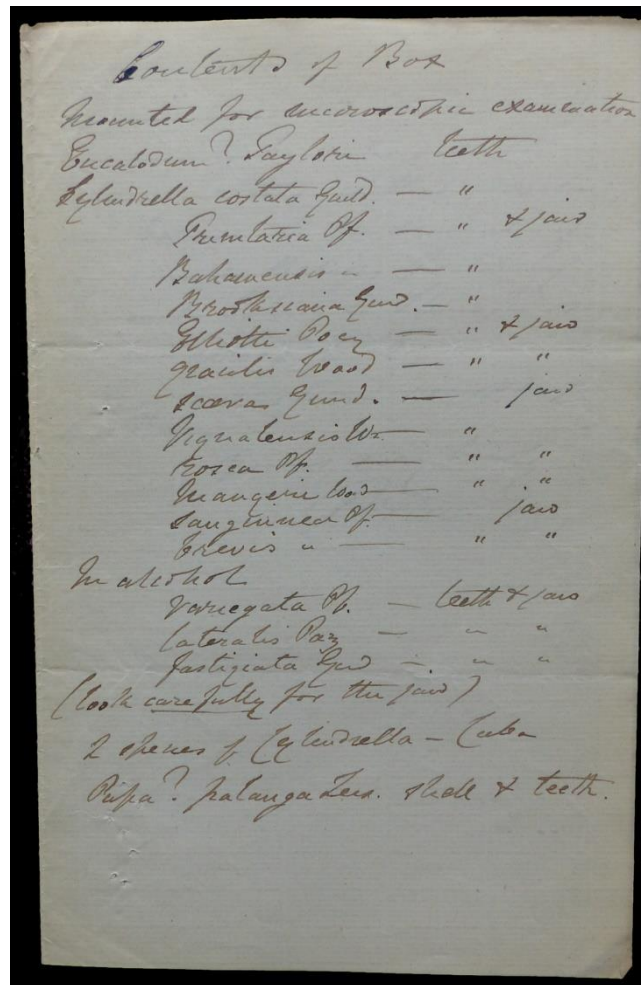 Contents of Box
Mounted for microscopic examination
Eucalodium? Taylori teeth
Cylindrella costata Guild. — "
Pf. — " & jaw
Bahamensis " — "
Brooksiana Gund. — "
Elliotti Poey — " & jaw
gracilis Wood — " "
scaeva Gund. — jaw
Vignalensis Wr. — "
rosea Pf. — " "
Maugeri Wood — " "
sanguinea Pf. — jaw
brevis " — " "
In alcohol
variegata Pf. — teeth & jaw
lateralis Paz — " "
fastigiata Gund — " "
(look carefully for the jaw)
2 species of Cylindrella — Cuba
Pupa? palanga Less. shell & teeth.